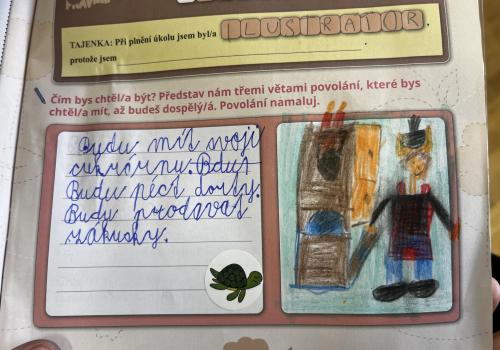 TAJENKA: Při plnění úkolu jsem byl/a ILUSTRÁTOR.
protože jsem
Čím bys chtěl/a být? Představ nám třemi větami povolání, které bys
chtěl/a mít, až budeš dospělý/á. Povolání namaluj.
Budu mít svoji
cukrárnu. Bdut
Budu péct dorty.
Budu prodávat
zákusky.